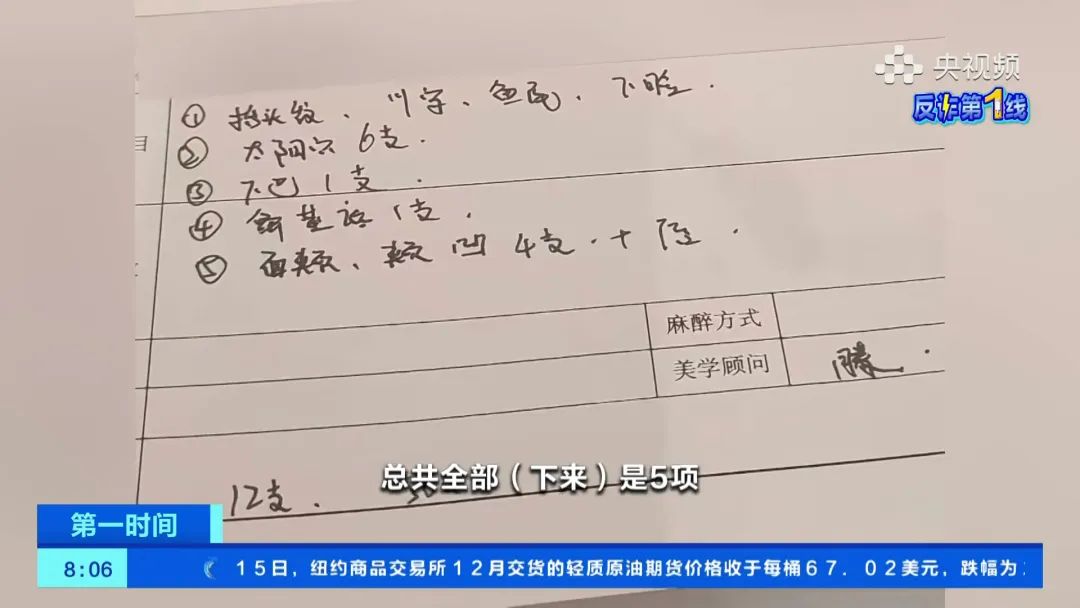 央视频
反诈第1线
① 抬头纹、川字、鱼尾、下睑.
目
② 太阳穴 6支.
③ 下巴 1支.
④ 鼻基底 1支.
⑤ 面颊、颊凹 4支.十
麻醉方式
美学顾问
滕.
总共全部（下来）是5项
12支.
第一时间
8:06
15日，纽约商品交易所12月交货的轻质原油期货价格收于每桶67.02美元，跌幅为